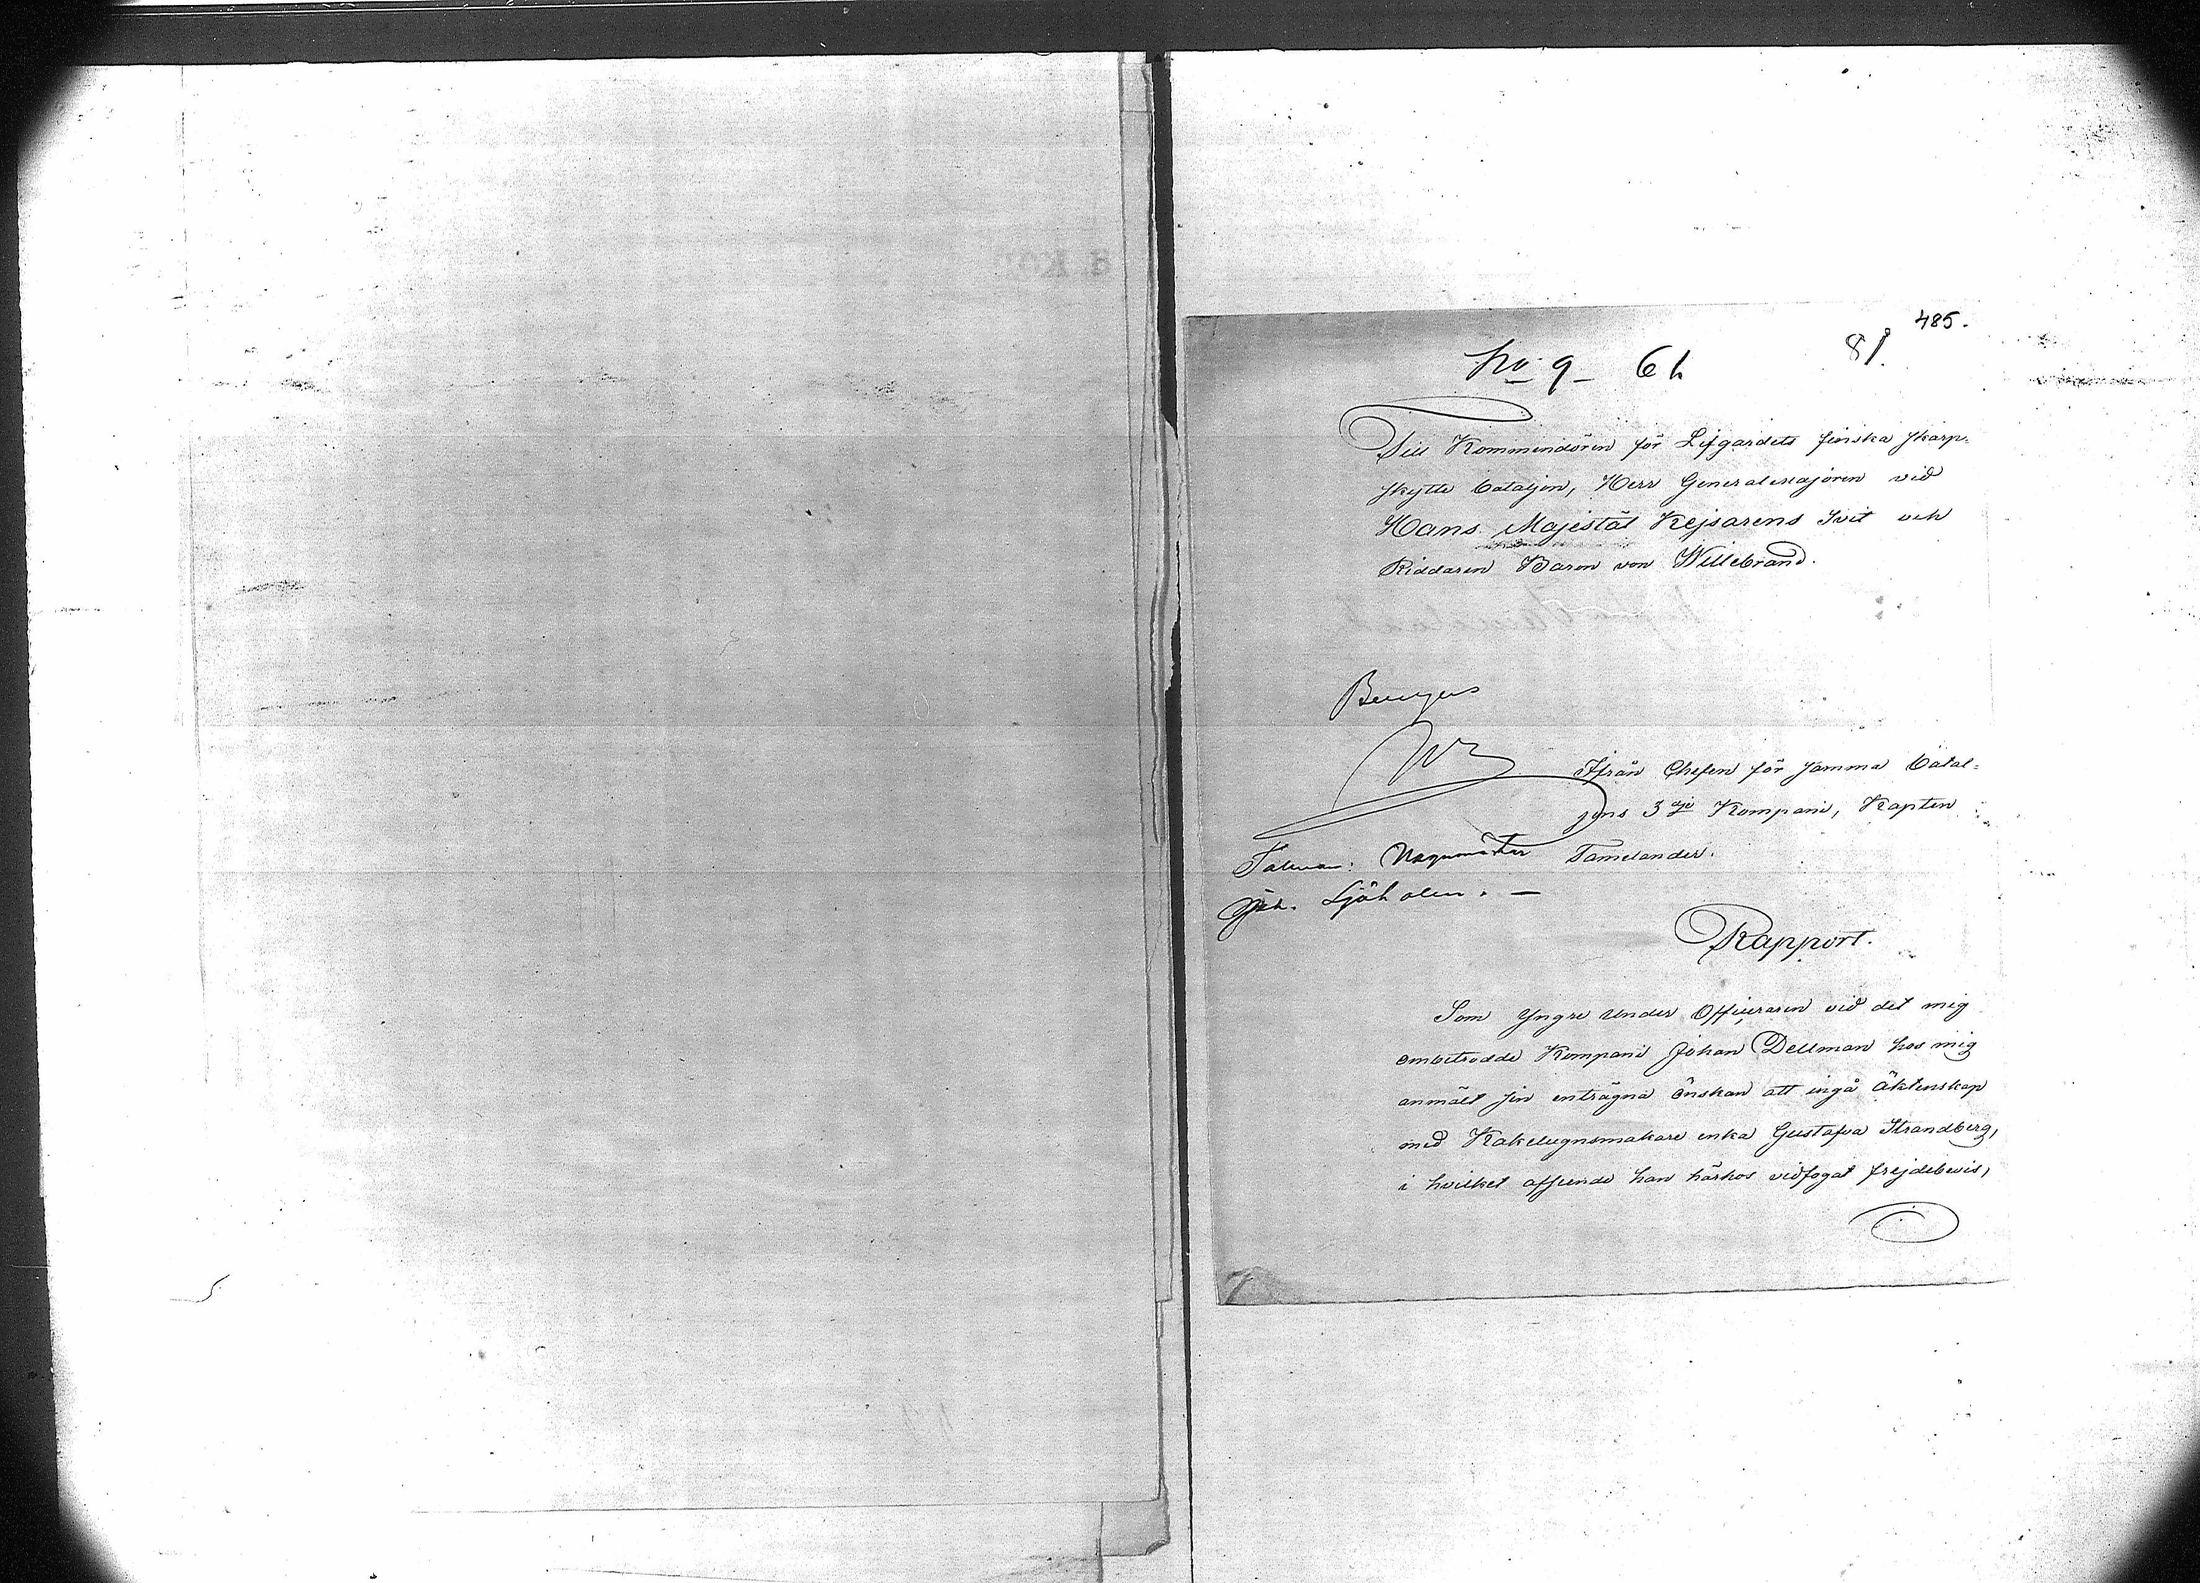 485.
81.
No 9 — 61
Till Kommendören för Lifgardets finska skarp-
skytte bataljon, Herr Generalmajoren vid
Hans Majestät Kejsarens Svit och
Riddaren Baron von Willebrand.
Bewiljas
Ifrån Chefen för samma batal=
jons 3dje Kompani, Kapten
Tamelander.
Talman: Vagnmakar
Joh. Sjöholm. —
Rapport.
Som Yngre Under Officeraren vid det mig
ombetrodde Kompani Johan Dellman hos mig
anmält sin enträgna önskan att ingå äktenskap
med Kakelugnsmakare enka Gustafva Strandberg,
i hvilket afseende han härhos vidfogat frejdebevis,